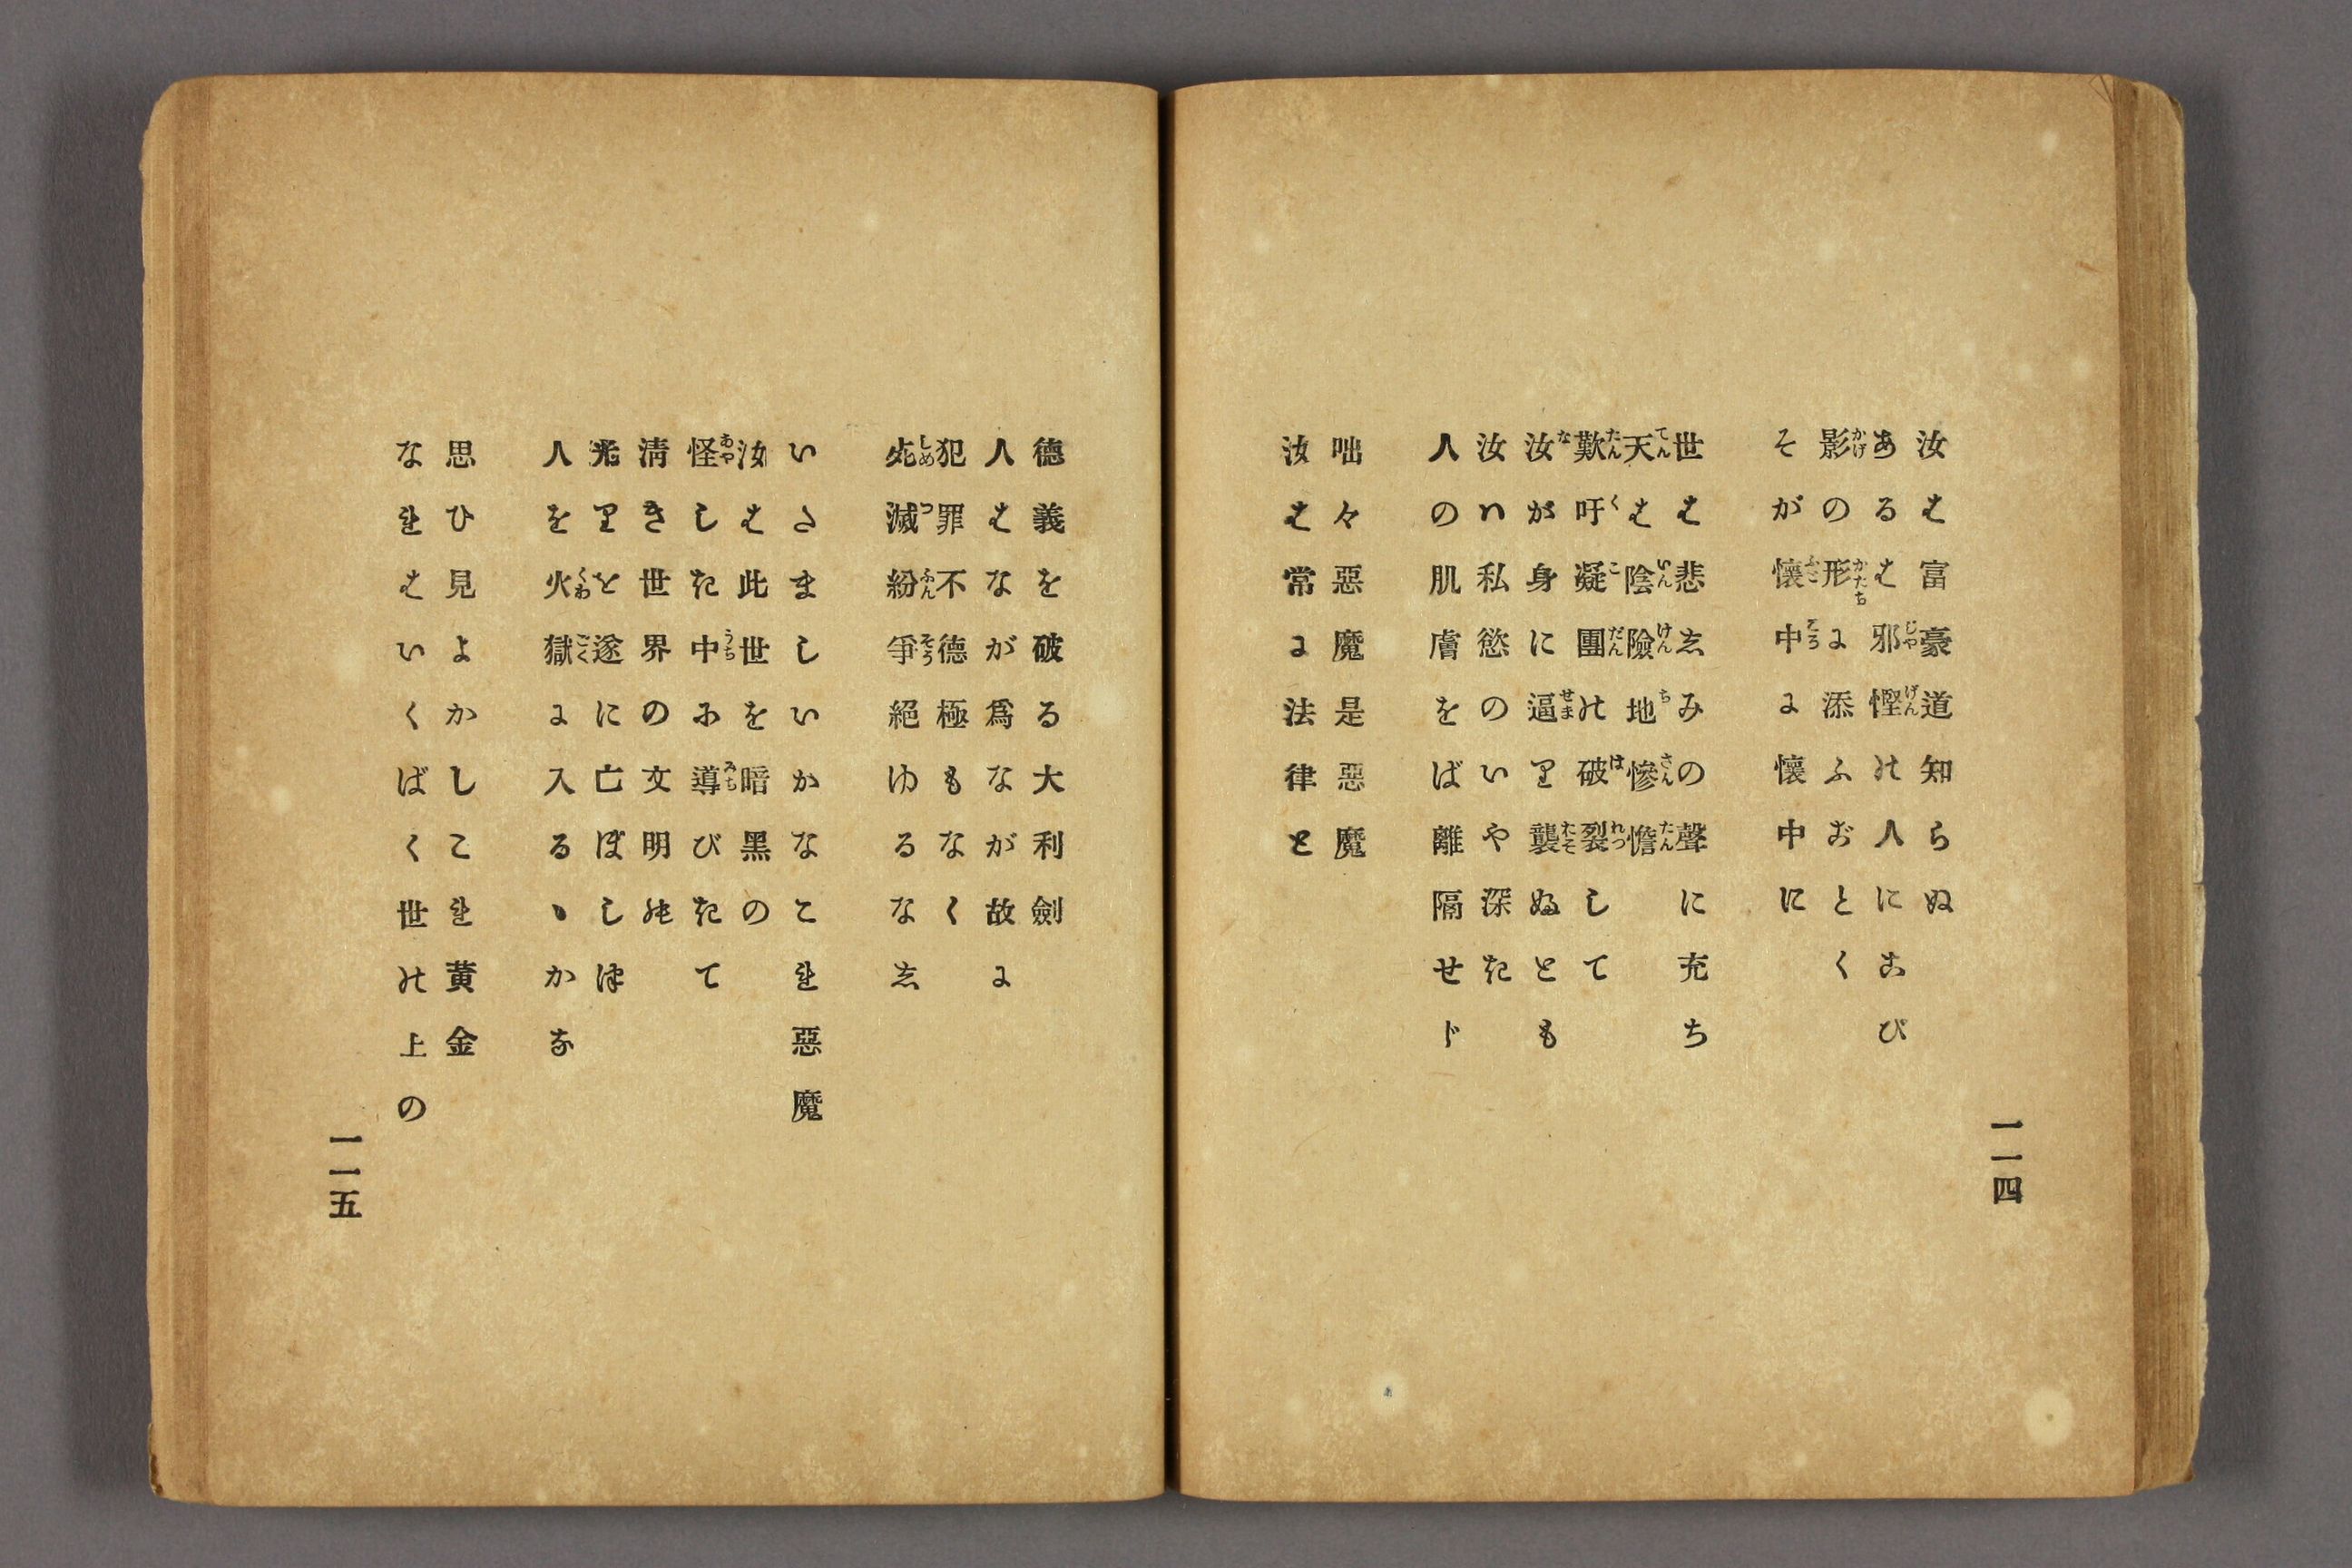 汝は富豪道知らぬ
あるは邪慳の人にこび
影の形に添ふごとく
そが懷中に懷中に
世は悲しみの聲に充ち
天は陰險地慘憺
歎吁凝團の破裂して
汝が身に逼り襲ぬとも
汝ハ私慾のいや深き
人の肌膚をば離隔せじ
咄々惡魔是惡魔
汝は常に法律と
一一四
德義を破る大利劍
人はなが爲なが故に
犯罪不德極もなく
死滅紛爭絕ゆるなし
いさましいかなこれ惡魔
汝は此世を暗黑の
怪しき中に導びきて
淸き世界の文明も
光りと遂に亡ぼしつ
人を火獄に入るゝかな
思ひ見よかしこれ黃金
なれはいくばく世の上の
一一五